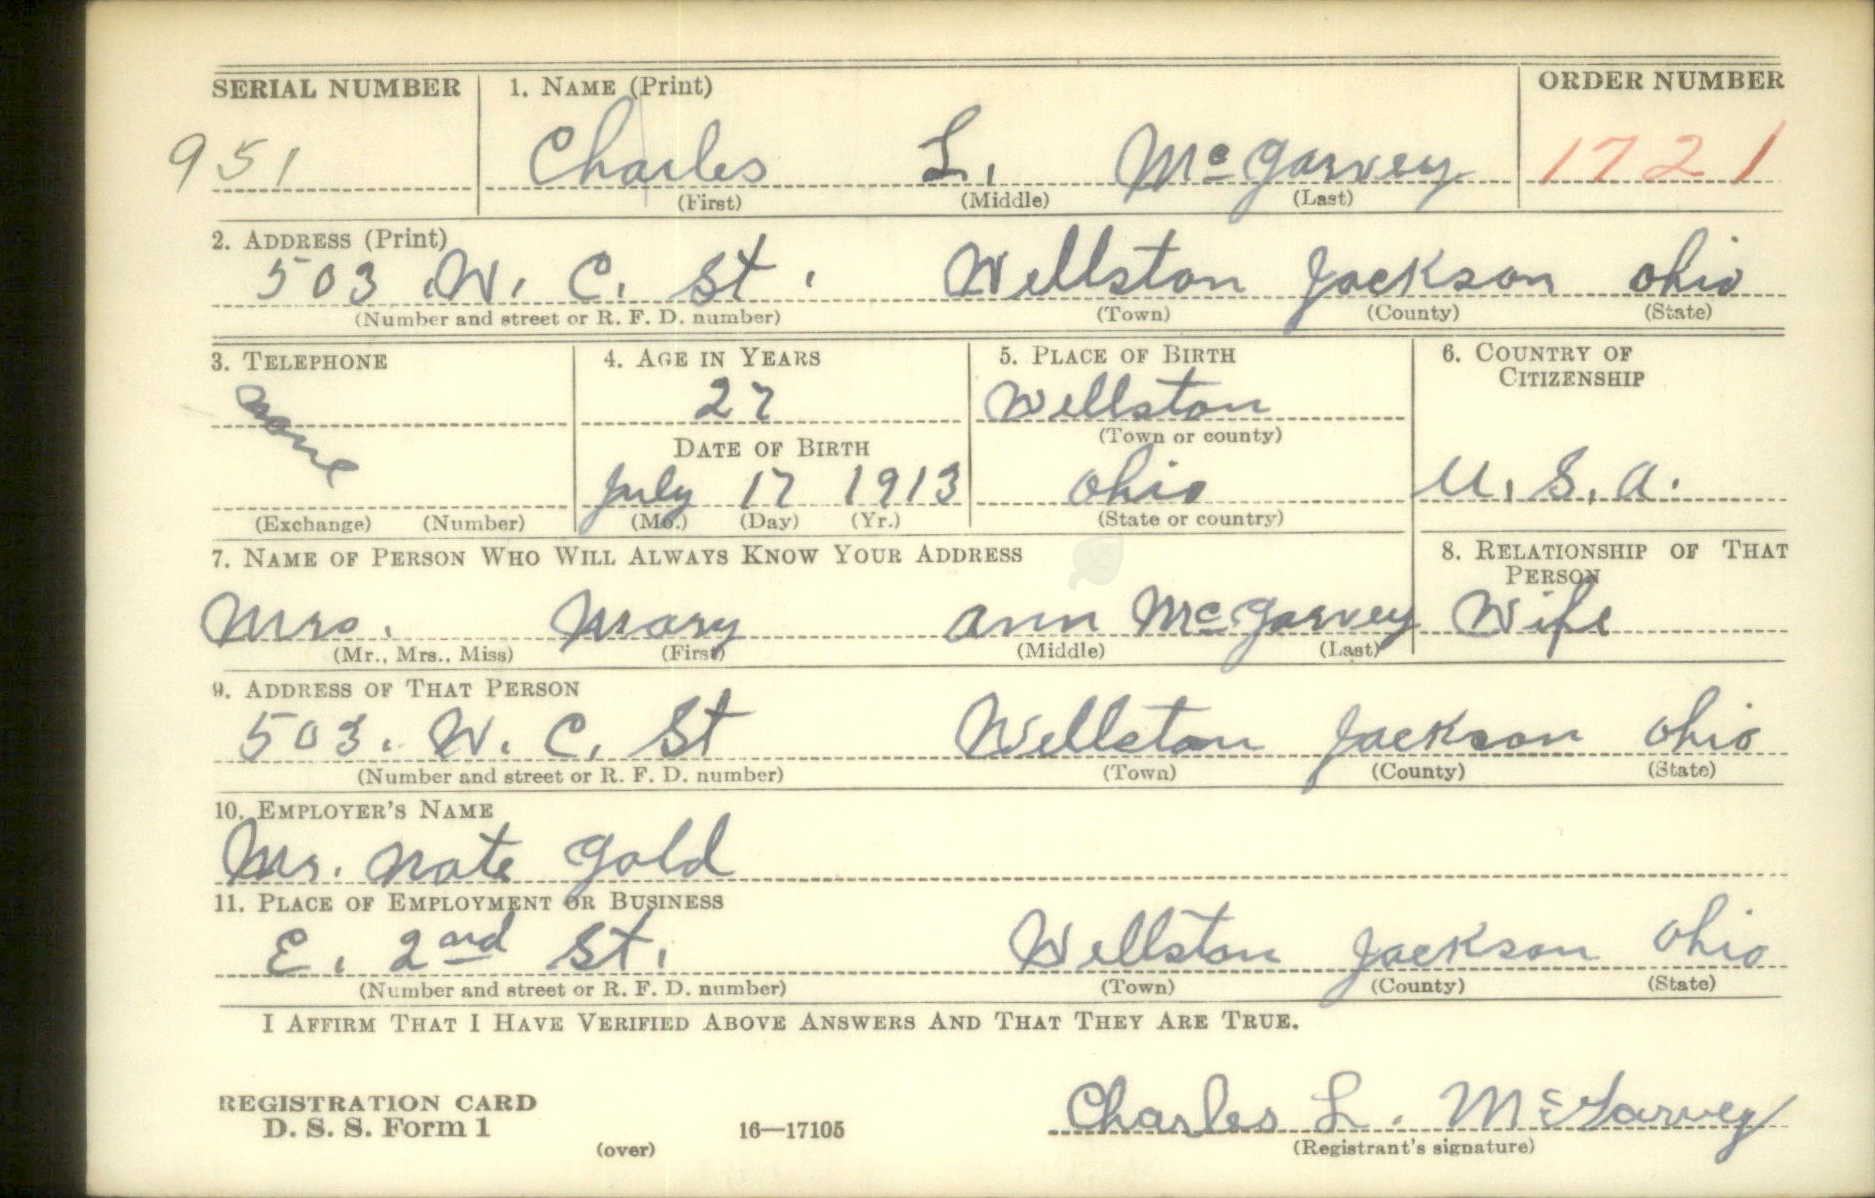 SERIAL NUMBER 1. NAME (Print) ORDER NUMBER
951 Charles L. McGarvey 1721
(First) (Middle) (Last)
2. ADDRESS (Print)
503 W. C. St. Wellston Jackson Ohio
(Number and street or R. F. D. number) (Town) (County) (State)
3. TELEPHONE 4. AGE IN YEARS 5. PLACE OF BIRTH 6. COUNTRY OF
CITIZENSHIP
none 27 Wellston
DATE OF BIRTH (Town or county)
July 17 1913 Ohio U.S.A.
(Exchange) (Number) (Mo.) (Day) (Yr.) (State or country)
7. NAME OF PERSON WHO WILL ALWAYS KNOW YOUR ADDRESS 8. RELATIONSHIP OF THAT
PERSON
Mrs. Mary Ann McGarvey Wife
(Mr., Mrs., Miss) (First) (Middle) (Last)
9. ADDRESS OF THAT PERSON
503. W. C. St Wellston Jackson Ohio
(Number and street or R. F. D. number) (Town) (County) (State)
10. EMPLOYER'S NAME
Mr. Nate Gold
11. PLACE OF EMPLOYMENT OR BUSINESS
E. 2nd St. Wellston Jackson Ohio
(Number and street or R. F. D. number) (Town) (County) (State)
I AFFIRM THAT I HAVE VERIFIED ABOVE ANSWERS AND THAT THEY ARE TRUE.
REGISTRATION CARD
D. S. S. Form 1 (over) 16—17105 Charles L. McGarvey
(Registrant's signature)